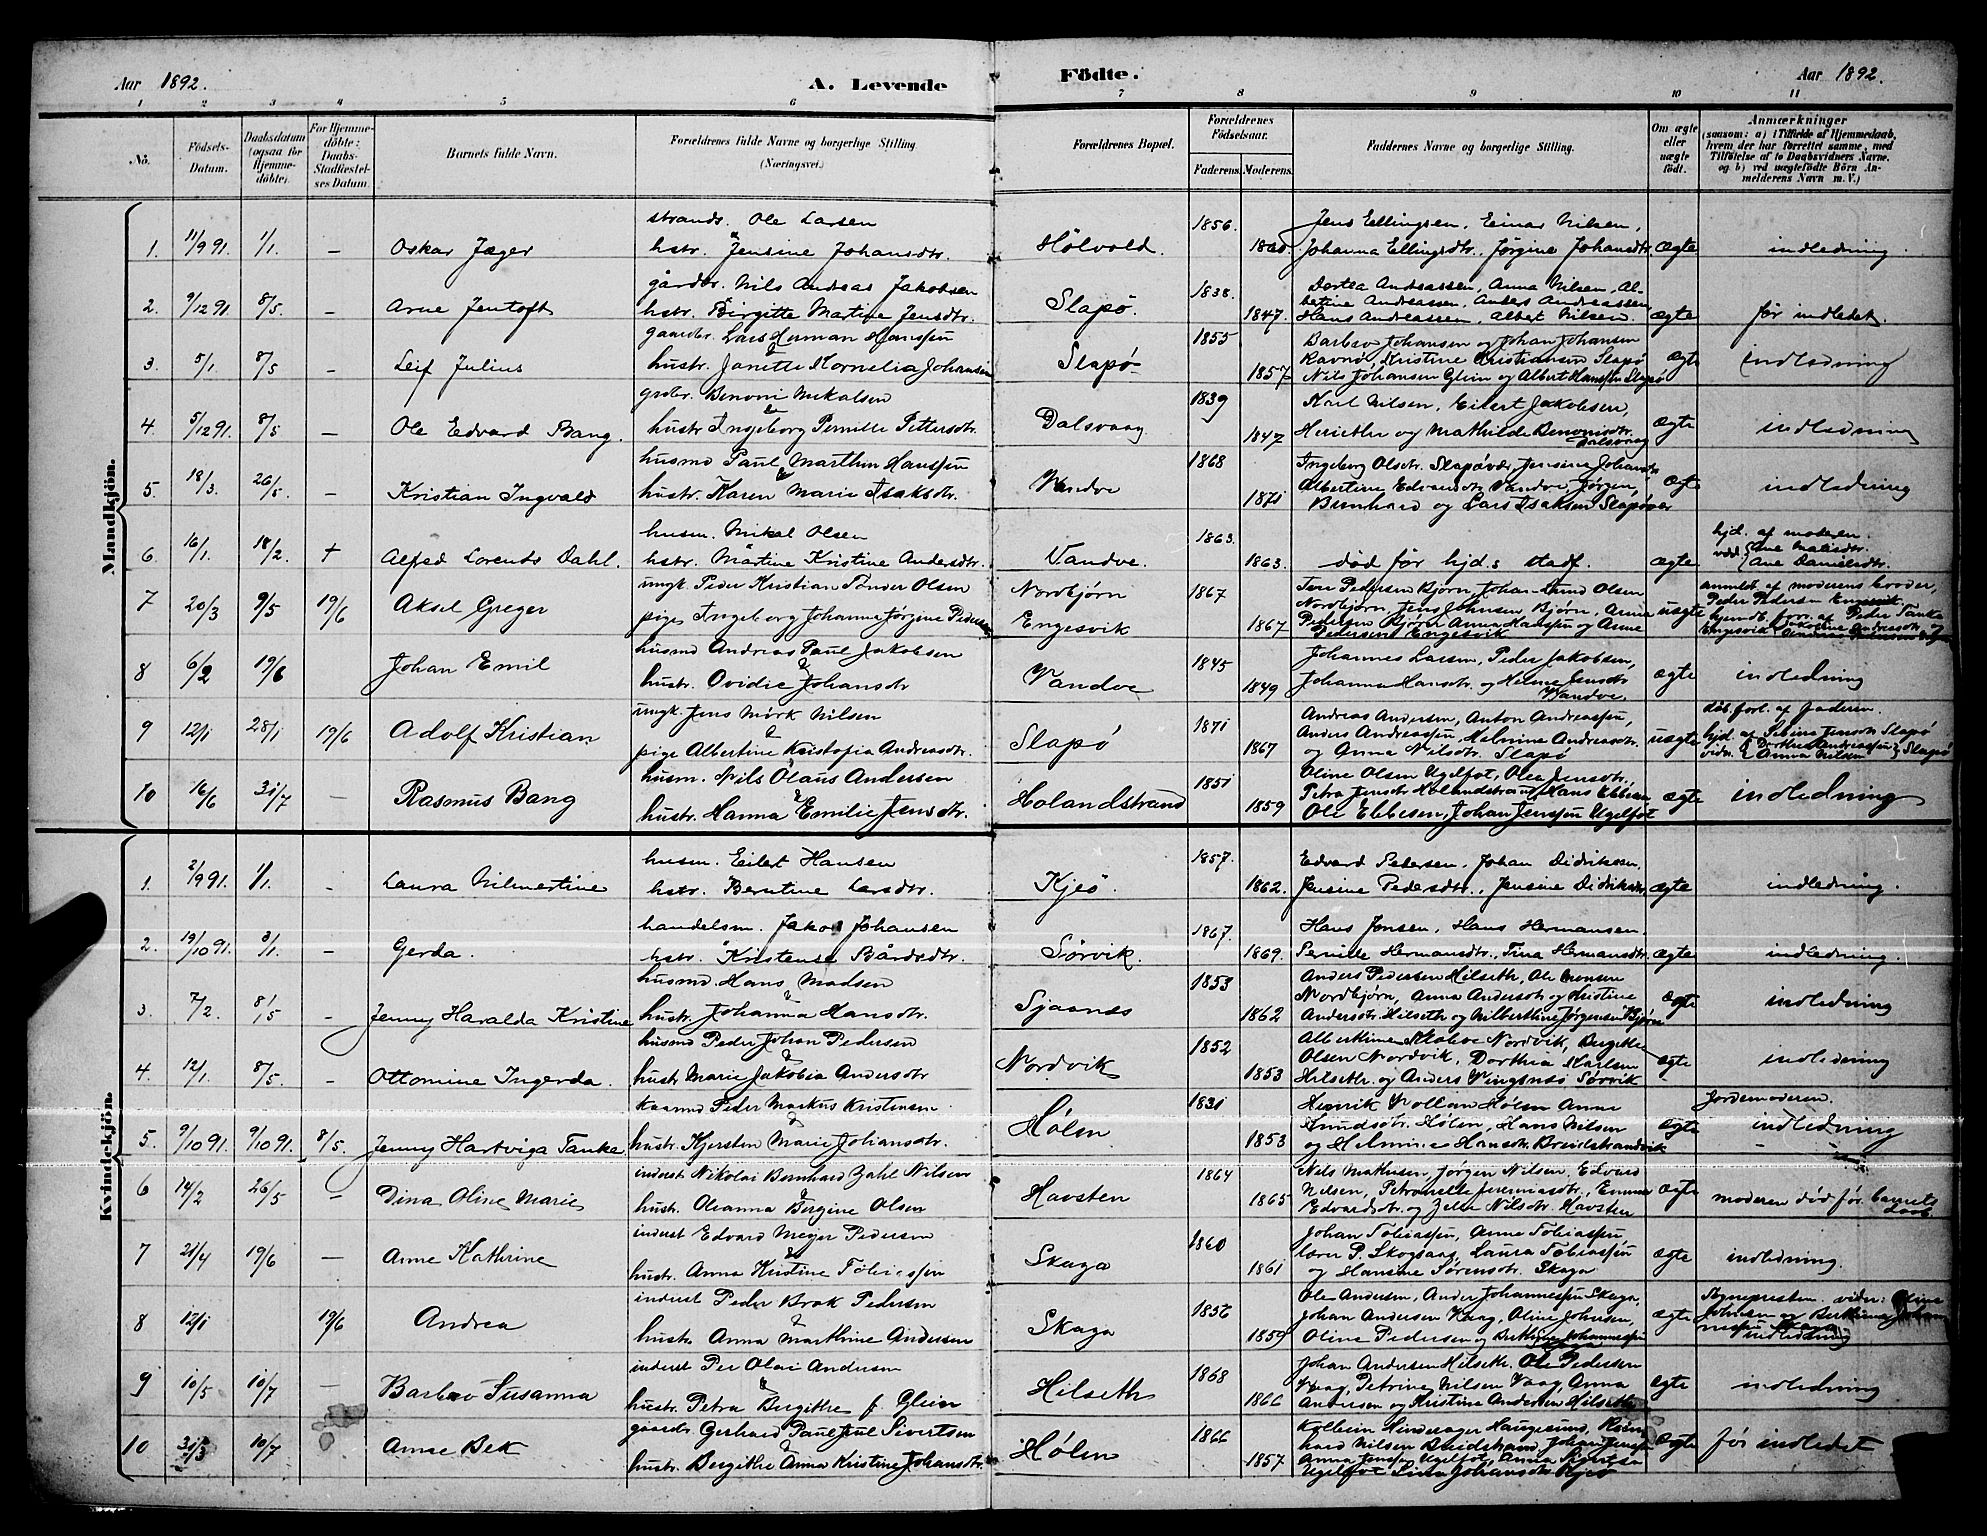 Aar 1892.
A. Levende Födte.
Aar 1892.
1 2 3 4 5 6 7 8 9 10 11
No.
Födsels-Datum.
Daabsdatum (ogsaa for Hjemme-döbte).
For Hjemme-döbte: Daabs-Stadfæstel-ses Datum.
Barnets fulde Navn.
Forældrenes fulde Navne og borgerlige Stilling (Næringsvei.)
Forældrenes Bopæl.
Forældrenes Födselsaar.
Faderens. Moderens.
Faddernes Navne og borgerlige Stilling.
Om ægte eller uægte födt.
Anmærkninger
(saasom: a) i Tilfælde af Hjemmedaab, hvem der har forrettet samme, med Tilföielse af to Daabsvidners Navne. og b) ved uægtefödte Börn An-melderens Navn m. V.)
Mandkjön.
1. 11/9 91. 1/1. — Oskar Jæger
strands. Ole Larsen & hstr. Jensine Johansdtr.
Hölvold. 1856. 1860.
Jens Ellingsen, Einar Nilsen,
Johanna Ellingsdtr., Jørgine Johansdtr.
ægte indledning.
2. 9/12 91. 8/5. — Arne Jentoft
gårdbr. Nils Andreas Jakobsen
hstr. Birgitte Martine Jensdtr.
Slapø. 1838. 1847.
Dortea Andreassen, Anna Nilsen, Al-
bertine Andreassen, Anders Andreassen
Hans Andreassen, Albert Nilsen.
ægte før indledet.
3. 5/1. 8/5 — Leif Julius
gaardbr. Lars Herman Hanssen
& hustr. Janette Kornelia Johansen
Slapø 1855 1857
Barbro Johansen og Johan Johansen
Ravnø, Kristine Kristiansen Slapø
Nils Johansen Glein og Albert Hanssen Slapø
ægte indledning
4. 5/12 91. 8/5. — Ole Edvard Bang.
grdbr. Benoni Mikalsen
& hustr. Ingeborg Pernille Pettersdtr.
Dalsvaag 1839 1847
Karl Nilsen, Eilert Jakobsen,
og Mathilde Benonisdtr. Dalsvaag
ægte indledning
5. 18/3. 26/5. — Kristian Ingvald
husmd Paul Marthin Hanssen
& hustr. Karen Marie Isaksdtr.
Vandve 1868 1871
Ingeborg Olsdtr. Slapøvær, Jensine Johansdtr
Albertine Edvardsdtr Vandve, Jørgen,
Bernhard og Lars Isaksen Slapøvær
ægte indledning
6. 16/1. 18/2. + Alfred Lorents Dahl.
husm. Mikal Olsen
hstr. Martine Kristine Andersdtr.
Vandve. 1863. 1863.
død før hjd.s stadf.
ægte
hjd. af moderen.
Ane Danielsdtr.
7 20/3 9/5 19/6 Aksel Greger
ungk. Peder Kristian Olsen
pige Ingeborg Johanna Jørgine Pedersen
Nordbjørn Engesvik 1867 1867
Pedersen Bjørn, Johan Olsen
Nordbjørn, Jens Johnsen Bjørn, Anne
Pedersen Bjørn, Anna Hanssen og Anne
Pedersen Engesvik
uægte
anmeldt af moderens broder,
Peder Pedersen
8 6/2 19/6 Johan Emil
husmd Andreas Paul Jakobsen
& hustr. Ovidie Johansdtr
Vandve 1845 1849
Johannes Larsen, Peder Jakobsen,
Johanna Hansdtr. og Helene Jensdtr
Vandve.
ægte indledning
9 12/1 28/1 19/6 Adolf Kristian
ungk. Jens Mörk Nilsen
& pige Albertine Kristofia Andreasdtr.
Slapø 1871 1867
Andreas Andersen, Anton Andreassen,
Anders Andreassen, Helmine Andreasdtr.
og Anna Nilsdtr. Slapø
uægte
hjd. af Jensdtr Slapø
vidn. Dorthea Andreassen Anna Nilsen Slapø
10 16/6 31/7 — Rasmus Bang
husm. Nils Olaus Andersen
& hustr. Hanna Emilie Jensdtr.
Holandstrand 1851 1859
Oline Olsen Ugelfot, Olea Jensdtr.,
Petra Jensdtr Holandstrand, Hans Ebbesen
Ole Ebbesen, Johan Jenssen Ugelfot
ægte indledning
Kvindekjön.
1. 2/9 91. 1/1. — Laura Wilmertine
husm. Eilert Hansen
hstr. Berntine Larsdtr.
Kjeø. 1857. 1862.
Edvard Pedersen, Johan Didriksen,
Jensine Pedersdtr., Jensine Didriksdtr
ægte indledning.
2. 19/10 91. 3/1. — Gerda.
handelsm. Jakob Johansen
hstr. Kristense Bårdsdtr.
Sørvik. 1867. 1869.
Hans Jensen, Hans Hermansen.
Pernille Hermansdtr., Tina Hermansdtr.
ægte indledning.
3. 7/2. 8/5 — Jenny Haralda Kristine
husmd Hans Madsen
& hustr. Johanna Hansdtr.
Sjaanes 1853 1862
Anders Pedersen Hilseth, Ole Monsen
Nordbjørn, Anna Andersdtr og Kristine
Andersdtr. Hilseth og Jørgensen Bjørn
ægte indledning
4. 12/1. 8/5. — Ottomine Ingerda.
husmd Peder Johan Pedersen
& hustr Marie Jakobia Andersdtr
Nordvik 1852 1853
Nordvik, Bergitte
Olsen Nordvik, Dorthea Karlsen
Hilseth. og Anders Vingsnes Sørvik
ægte indledning
5. 9/10 91. 9/10 91. 8/5. Jenny Hartviga Tanke
Peder Markus Kristensen
& hustr. Kjersten Marie Johansdtr.
Hølen 1831 1853
Henrik Hølen, Anne
Knudsdtr. Hølen, Hans Nilsen
og Helmine Hansdtr. Breidstrandvik
ægte
Jordemoderen.
indledning
6 14/2 26/5 — Dina Oline Marie
inderst Nikolai Bernhard Zahl Nilsen
& hustr. Oleanna Bergine Olsen
Havsten 1864 1865
Nils Mathisen, Jørgen Nilsen, Edvard
Nilsen, Petronelle Jeremiasdtr., Emma
Edvardsdtr. og Nilsdtr. Havsten
ægte moderen død før barnets daab.
7 21/4 19/6 — Anne Kathrine
inderst Edvard Meyer Pedersen
& hustr. Anna Kristine Tobiassen
Skaga 1860 1861
Johan Tobiassen, Anne Tobiassen,
lærer P. Skogsaas, Laura Tobiassen
og Hansine Sørensdtr. Skaga
ægte indledning.
8 12/1 19/6 Andrea
inderst Peder Brok Pedersen
& hustr. Anna Marthine Andersen
Skaga 1856 1859
Ole Andersen, Ander Johannessen Skaga,
Johan Andersen Vaag, Oline Johnsen,
Oline Pedersen og Berthine Johannessen
Skaga
ægte
Sognepresten. vidn: Oline
Johnsen og Berthine Johan-
nessen Skaga
indledning
9 10/5 10/7 — Barbro Susanna
inderst Per Olai Andersen
& hustr. Petra Bergithe f. Glein
Hilseth 1868 1866
Johan Andersen Hilseth, Ole Pedersen
Vaag, Petrine Nilsen Vaag, Anna
Andersen og Kristine Andersen Hilseth
ægte indledning
10 31/3 10/7 Anne Bek
gaardb Gerhard Paul Juul Sivertsen
& hustr. Bergithe Anna Kristine Johansdtr.
Hølen 1866 1857
Kolbein Hindersger Haugesund,
Nilsen Breidstrand, Johan Jenssen
Anna Jenssen Ugelfot, Anna Sivertsen
Ugelfot Johansdtr. Kjeø
ægte før indledet